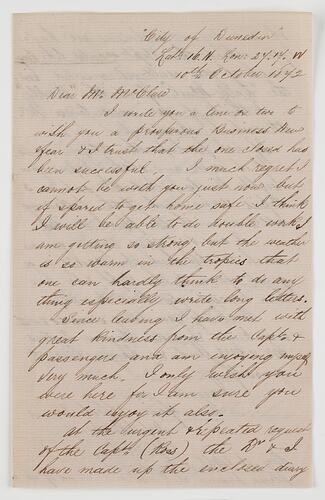 "City of Dunedin"
Latt: 16. N. Lon: 27.14. W
10th October 1872
Dear Mr. McClew
I write you a line or two to
wish you a prosperous Business New
Year & I trust that the one closed has
been successful. I much regret I
cannot be with you just now but
if spared to get home safe I think
I will be able to do double work I
am getting so strong, but the weather
is so warm in the tropics that
one can hardly think to do any
thing especially write long letters.
Since leaving I have met with
great kindness from the Captn &
passengers and am enjoying myself
very much. I only wish you
were here for I am sure you
would enjoy it also.
At the urgent & repeated request
of the Captn (Ross) the Dr & I
have made up the enclosed diary